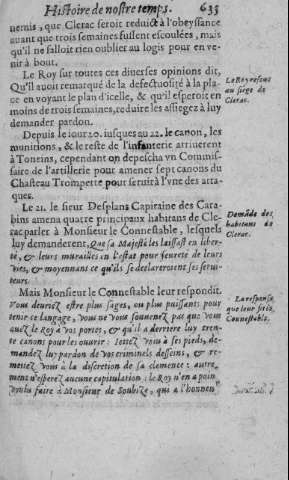 Histoire de nostre temps. 633
nemis, que Clerac seroit reduict à l'obeyssance
auant que trois semaines fussent escoulées, mais
qu'il ne falloit rien oublier au logis pour en ve-
nir à bout.
Le Roy sur toutes ces diuerses opinions dit,
Qu'il auoit remarqué de la defectuosité à la pla-
ce en voyant le plan d'icelle, & qu'il esperoit en
moins de trois semaines, reduire les assiegez à luy
demander pardon.
Le Roy resout
au siege de
Clerac.
Depuis le iour 20. iusques au 22. le canon, les
munitions, & le reste de l'infanterie arriuerent
à Toneins, cependant on depescha vn Commis-
saire de l'artillerie pour amener sept canons du
Chasteau Trompette pour seruir à l'vne des atta-
ques.
Le 21. le sieur Desplans Capitaine des Cara-
bins amena quatre principaux habitans de Cle-
rac parler à Monsieur le Connestable, lesquels
luy demanderent, Que sa Majesté les laissast en liber-
té, & leurs murailles en l'estat pour seureté de leurs
vies, & moyennant ce qu'ils se declareroient ses serui-
teurs.
Demāde des
habitans de
Clerac.
Mais Monsieur le Connestable leur respondit.
Vous deuriez estre plus sages, ou plus puissans: pour
tenir ce langage, vous ne vous souuenez pas que vous
auez le Roy à vos portes, & qu'il a derriere luy tren-
te canons pour les ouurir: Iettez vous à ses pieds, de-
mandez luy pardon de vos criminels desseins, & re-
mettez vous à la discretion de sa clemence: autre-
ment n'esperez aucune capitulation: le Roy n'en a poin
voulu faire à Monsieur de Soubize, qui a l'honneur
La response
que leur fit le
Connestable.